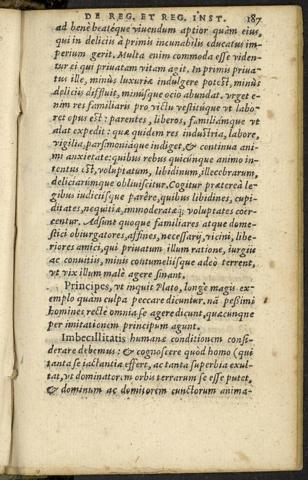 DE REG. ET REG. INST. 187
ad benè beatéque viuendum aptior quàm eius,
qui in deliciis à primis incunabulis educatus im-
perium gerit. Multa enim commoda esse viden-
tur ei qui priuatam vitam agit. In primis priua-
tus ille, minùs luxuriæ indulgere potest, minùs
deliciis diffluit, minúsque ocio abundat. vrget e-
nim res familiaris pro victu vestitúque vt labo-
ret opus est: parentes, liberos, familiámque vt
alat expedit: quæ quidem res industria, labore,
vigilia, parsimoniáque indiget, & continua ani
mi anxietate: quibus rebus quicúnque animo in-
tentus est, voluptatum, libidinum, illecebrarum,
deliciarúmque obliuiscitur. Cogitur præterea le-
gibus iudiciísque parêre, quibus libidines, cupi-
ditates, nequitiæ, immoderatæq; voluptates coër-
centur. Adsunt quoque familiares atque dome-
stici obiurgatores, affines, necessarij, vicini, libe-
riores amici, qui priuatum illum ratione, iurgiis
ac conuitiis, minis contumeliísque adeò terrent,
vt vix illum malè agere sinant.
Principes, vt inquit Plato, longè magis ex-
emplo quàm culpa peccare dicuntur. nã pessimi
homines rectè omnia se agere dicunt, quæcunque
per imitationem principum agunt.
Imbecillitatis humanæ conditionem consi-
derare debemus: & cognoscere quòd homo (qui
tanta se iactantia effert, ac tanta superbia exul-
tat, vt dominatorem orbis terrarum se esse putet,
& dominum ac domitorem cunctorum anima-